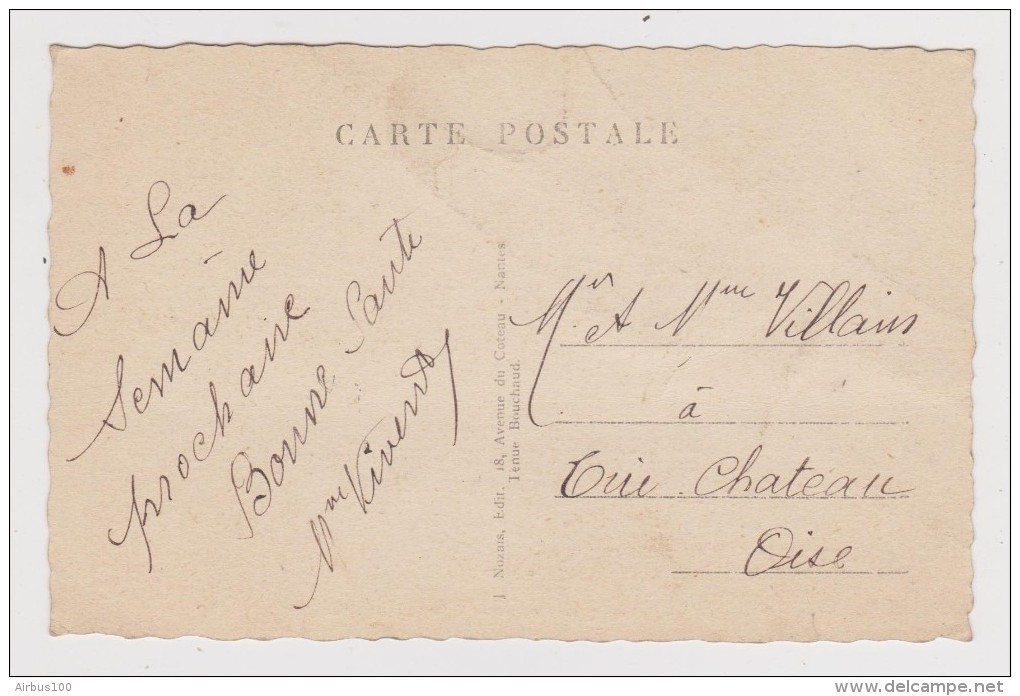 CARTE POSTALE
A La
Semaine
prochaine
Bonne Santé
Mme Vivent
J Nozais, Edit. 18, Avenue du Coteau - Nantes
Tenue Bouchaud.
Mr A Mme Villain
à
Trie Chateau
Oise
Airbus100
www.delcampe.net